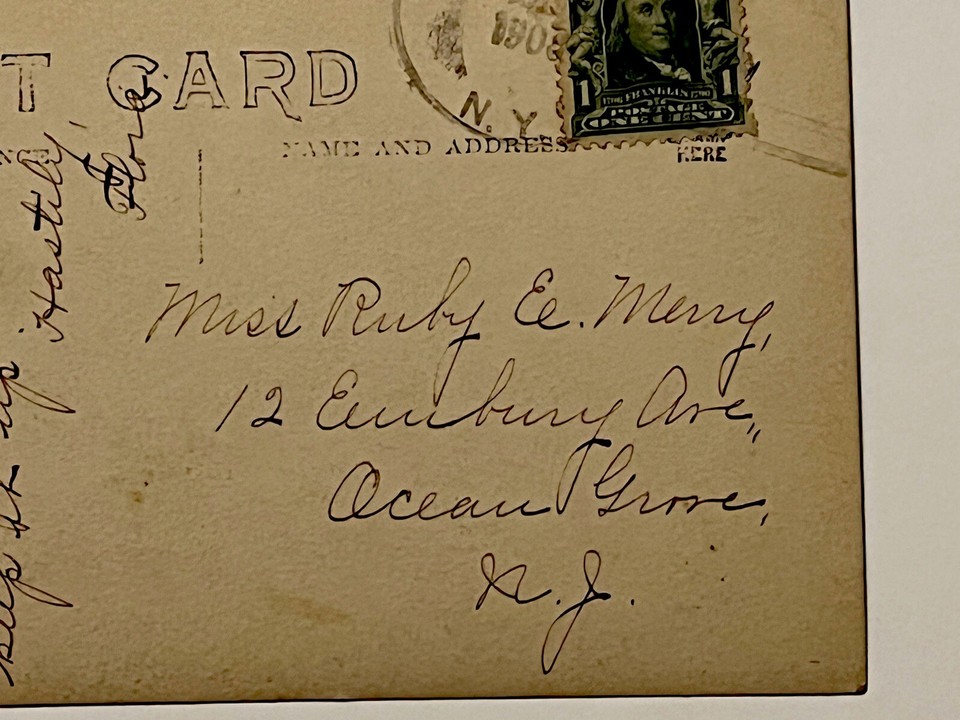 T CARD
190
N.Y.
1 FRANKLIN 1
POSTAGE
ONE CENT
NAME AND ADDRESS
HERE
Hastily,
Flora.
Miss Ruby E. Merry,
12 Embury Ave.,
Ocean Grove,
N.J.
keep it up